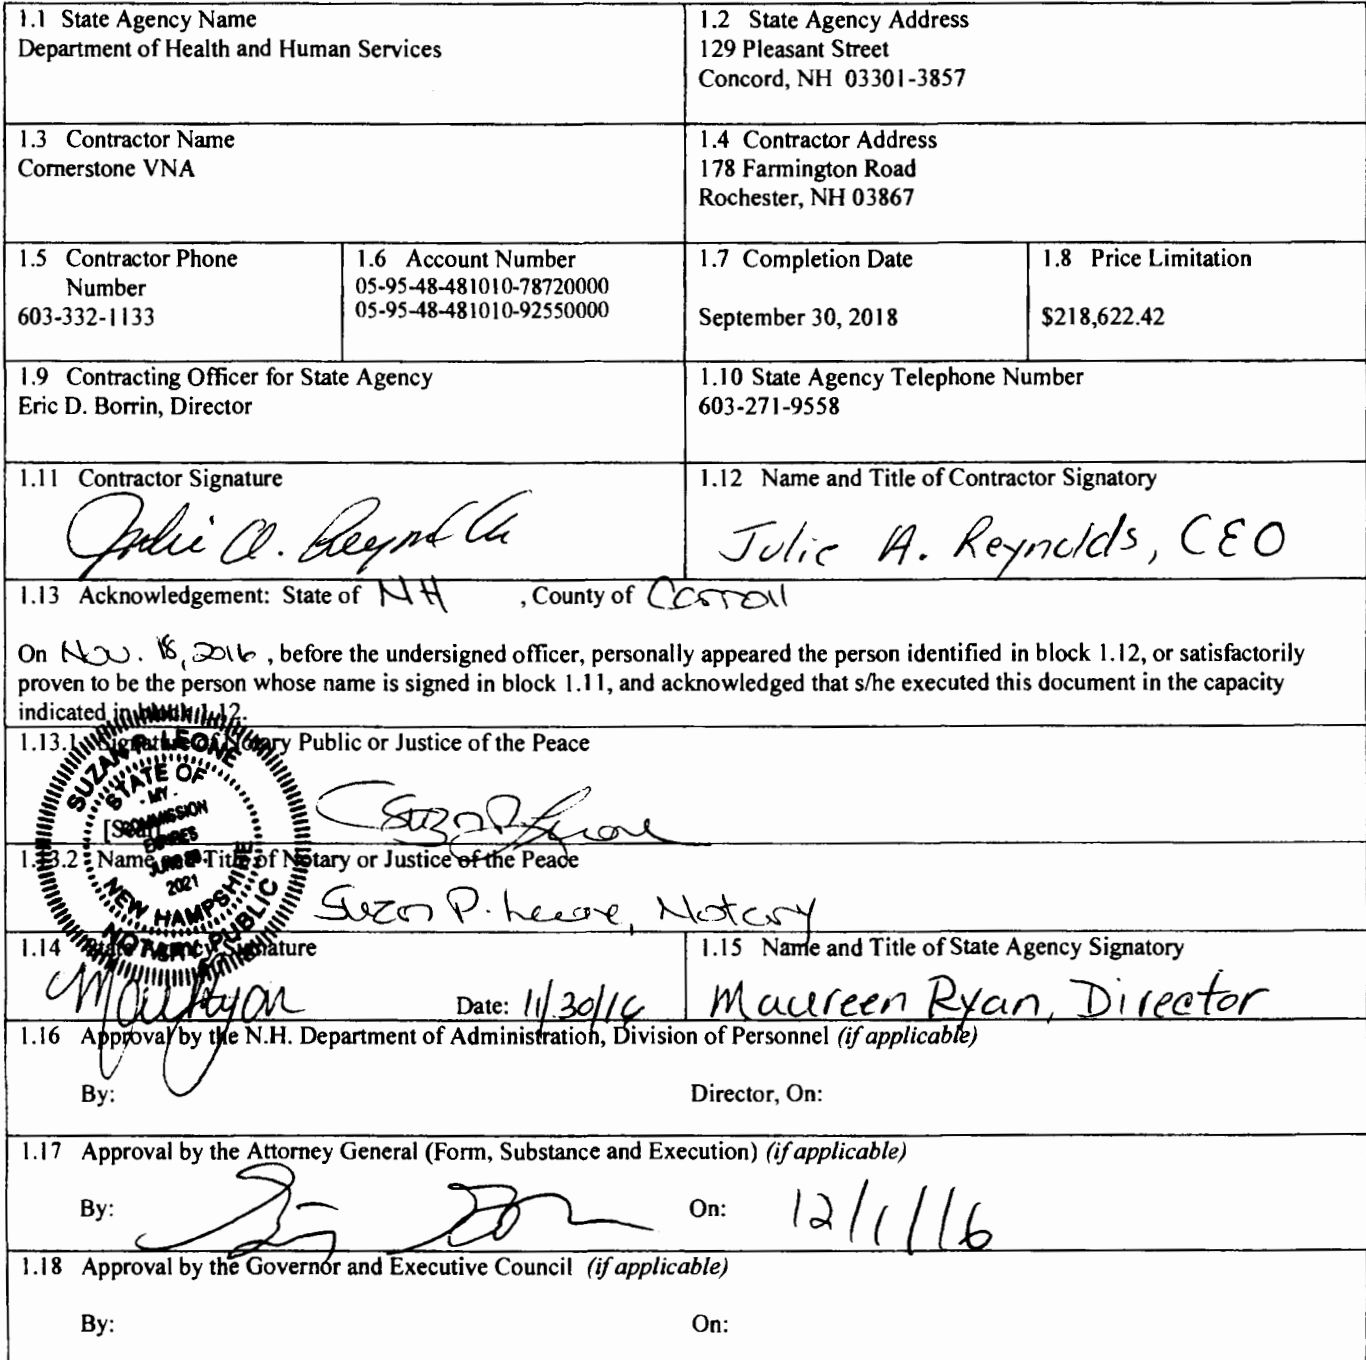 1.1 State Agency Name
Department of Health and Human Services
1.2 State Agency Address
129 Pleasant Street
Concord, NH 03301-3857
1.3 Contractor Name
Cornerstone VNA
1.4 Contractor Address
178 Farmington Road
Rochester, NH 03867
1.5 Contractor Phone
Number
603-332-1133
1.6 Account Number
05-95-48-481010-78720000
05-95-48-481010-92550000
1.7 Completion Date
September 30, 2018
1.8 Price Limitation
$218,622.42
1.9 Contracting Officer for State Agency
Eric D. Borrin, Director
1.10 State Agency Telephone Number
603-271-9558
1.11 Contractor Signature
Julie A. Reynolds
1.12 Name and Title of Contractor Signatory
Julie A. Reynolds, CEO
1.13 Acknowledgement: State of NH , County of Carroll
On Nov. 18, 2016 , before the undersigned officer, personally appeared the person identified in block 1.12, or satisfactorily
proven to be the person whose name is signed in block 1.11, and acknowledged that s/he executed this document in the capacity
indicated in block 1.12.
1.13.1 Signature of Notary Public or Justice of the Peace
SUZAN P. LEONE
STATE OF
- MY -
COMMISSION
EXPIRES
2021
NEW HAMPSHIRE
NOTARY PUBLIC
[Seal]
Suzan P. Leone
1.13.2 Name and Title of Notary or Justice of the Peace
Suzan P. Leone, Notary
1.14 State Agency Signature
Date: 11/30/16
1.15 Name and Title of State Agency Signatory
Maureen Ryan, Director
1.16 Approval by the N.H. Department of Administration, Division of Personnel (if applicable)
By:
Director, On:
1.17 Approval by the Attorney General (Form, Substance and Execution) (if applicable)
By:
On: 12/1/16
1.18 Approval by the Governor and Executive Council (if applicable)
By:
On: